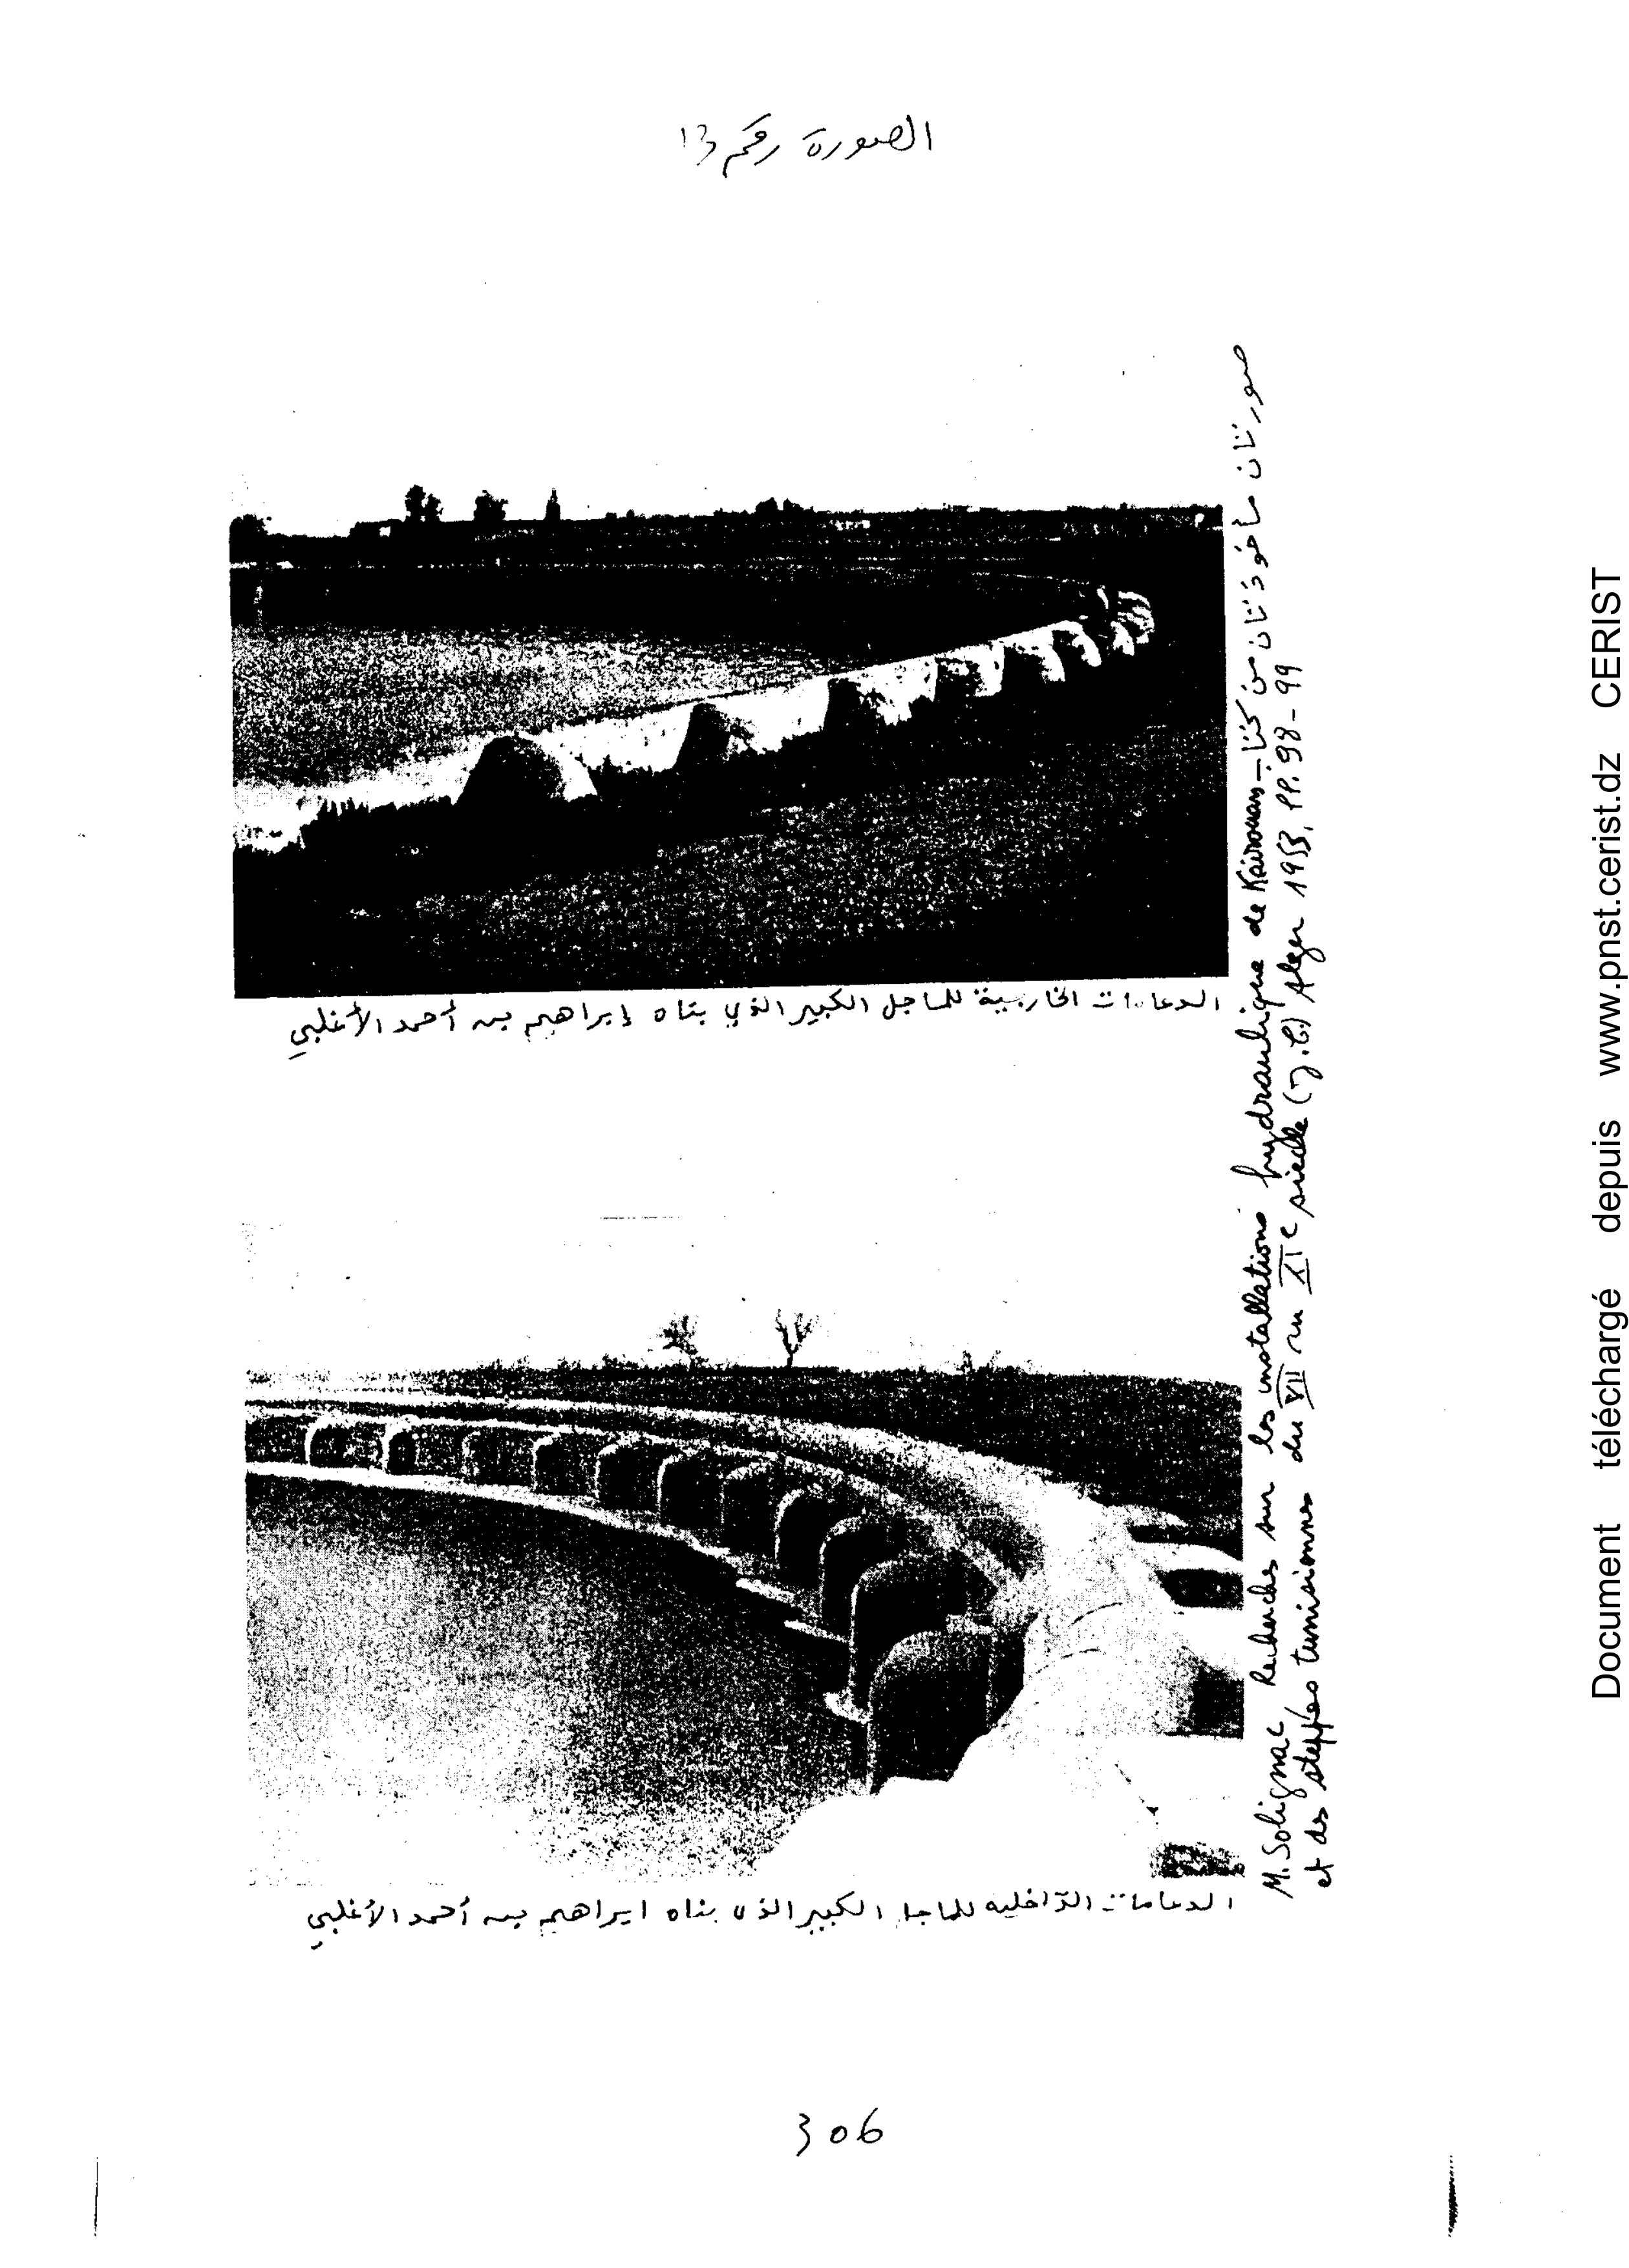 الصورة رقم 13
الدعامات الخارجية للماجل الكبير الذي بناه إبراهيم بن أحمد الأغلبي
الدعامات الدّاخلية للماجل الكبير الذي بناه ابراهيم بن أحمد الأغلبي
صورتان مأخوذتان من كتاب
M. Solignac Recherches sur les installations hydraulique de Kairouan
et des steppes tunisiennes du VII au XIe siècle (J.C) Alger 1953, PP. 98-99
306
Document téléchargé depuis www.pnst.cerist.dz CERIST